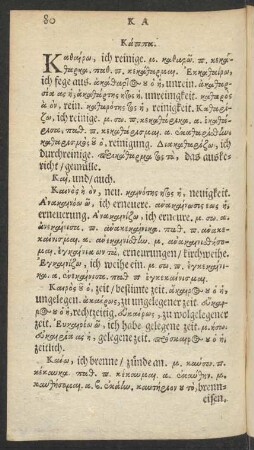 80 Κ Α
Κάππα.
Καθαίρω, ich reinige. μ. καθαρῶ. π. κεκά-
θαρκα. παθ. π. κεκάθαρμαι. Ἐκκαθαίρω,
ich fege aus. ἀκάθαρτος ου ὁ ἡ, unrein. ἀκαθαρ-
σία ας ἡ, ἀκαθάρτης ητος ἡ, unreinigkeit. καθαρὸς
ὰ ὸν, rein. καθαρότης ητος ἡ, reinigkeit. Καθαρί-
ζω, ich reinige. μ. σω. π.
καθαρισμὸς οῦ ὁ, reinigung. Διακαθαρίζω, ich
durchreinige. das außke-
richt/gemülle.
Καὶ, und/auch.
Καινὸς ὴ ὸν, neu. καινότης ητος ἡ, neuigkeit.
Ἀνακαινόω ῶ, ich erneuere. ἀνακαίνωσις εως ἡ,
erneuerung. Ἀνακαινίζω, ich erneure. μ. σω. α.
ἀνεκαίνισα. π. ἀνακεκαίνικα. παθ. π. ἀνακε-
καίνισμαι. α. ἀνεκαινίσθην. μ. ἀνακαινισθήσο-
μαι. ἐγκαίνια ων τὰ, erneurungen/kirchweihe.
Ἐγκαινίζω, ich weihe ein. μ. σω. π. ἐγκεκαίνι-
κα. α. ἐνεκαίνισα. παθ. π. ἐγκεκαίνισμαι.
Καιρὸς οῦ ὁ, zeit/bestimte zeit. ἄκαιρος ου ὁ ἡ,
ungelegen. ἀκαίρως, zu ungelegener zeit. εὔκαι-
ρος ου ὁ ἡ, rechtzeitig. εὐκαίρως, zu wolgelegener
zeit. Εὐκαιρέω ῶ, ich habe gelegene zeit. μ. ήσω.
εὐκαιρία ας ἡ, gelegene zeit. πρόσκαιρος ου ὁ ἡ,
zeitlich.
Καίω, ich brenne/zünde an. μ. καύσω. π.
κέκαυκα. παθ. π. κέκαυμαι. α. ἐκαύθην. μ.
καυθήσομαι. καυτήριον ου τὸ, brenn-
eisen.